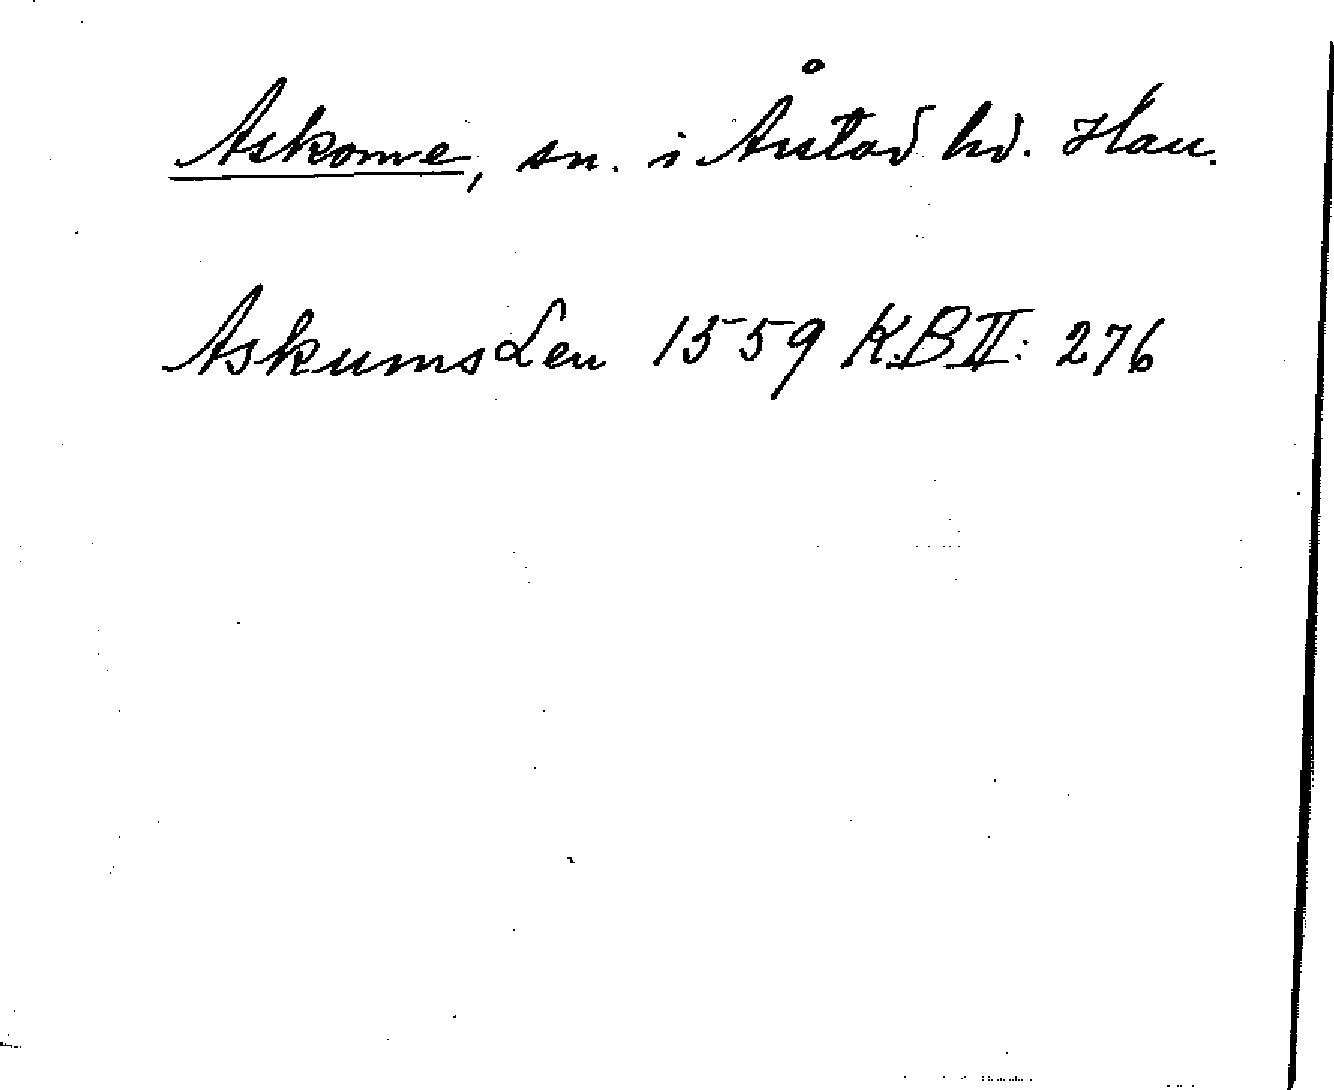 Askome, sn. i Årstad hd. Hall.
Askums Len 1559 KB II: 276